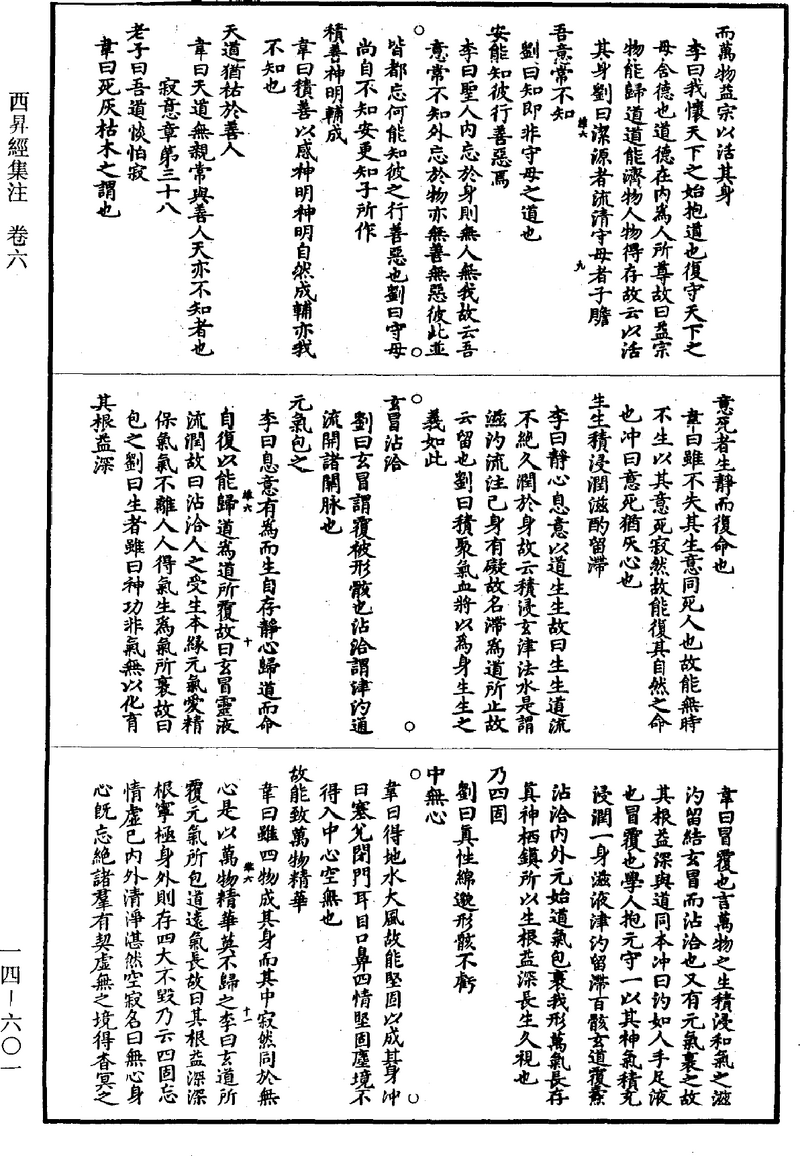 西昇經集注　卷六
一四—六〇一
而萬物益宗以活其身
李曰我懷天下之始抱道也復守天下之
母含德也道德在內為人所尊故曰益宗
物能歸道道能濟物人物得存故云以活
其身劉曰潔源者流清守母者子贍
吾意常不知
維六
九
劉曰知即非守母之道也
安能知彼行善惡焉
李曰聖人內忘於身則無人無我故云吾
意常不知外忘於物亦無善無惡彼此並
皆都忘何能知彼之行善惡也劉曰守母
尚自不知安更知子所作
積善神明輔成
韋曰積善以感神明神明自然成輔亦我
不知也
天道猶祐於善人
韋曰天道無親常與善人天亦不知者也
寂意章第三十八
老子曰吾道恢怕寂
韋曰死灰枯木之謂也
意死者生靜而復命也
韋曰雖不失其生意同死人也故能無時
不生以其意死寂然故能復其自然之命
也冲曰意死猶灰心也
生生積浸潤滋酌留滯
李曰靜心息意以道生生故曰生生道流
不絕久潤於身故云積浸玄津法水是謂
滋汋流注己身有礙故名滯為道所止故
云留也劉曰積聚氣血將以為身生生之
義如此
玄冒沾洽
劉曰玄冒謂覆被形骸也沾洽謂津汋通
流開諸關脉也
元氣包之
李曰息意有為而生自存靜心歸道而命
維六
十
自復以能歸道為道所覆故曰玄冒靈液
流潤故曰沾洽人之受生本緣元氣愛精
保氣氣不離人人得氣生為氣所裹故曰
包之劉曰生者雖曰神功非氣無以化育
其根益深
韋曰冒覆也言萬物之生積浸和氣之滋
汋留結玄冒而沾洽也又有元氣裹之故
其根益深與道同本冲曰汋如人手足液
也冒覆也學人抱元守一以其神氣積充
浸潤一身滋液津汋留滯百骸玄道覆燾
沾洽內外元始道氣包裹我形萬氣長存
真神栖鎮所以生根益深長生久視也
乃四固
劉曰真性綿邈形骸不虧
中無心
韋曰得地水大風故能堅固以成其身冲
曰塞兊閉門耳目口鼻四情堅固塵境不
得入中心空無也
故能致萬物精華
韋曰雖四物成其身而其中寂然同於無
維六
十一
心是以萬物精華莫不歸之李曰玄道所
覆元氣所包道遠氣長故曰其根益深深
根寧極身外則存四大不毀乃云四固忘
情虛己內外清淨湛然空寂名曰無心身
心既忘絕諸羣有契虛無之境得杳冥之